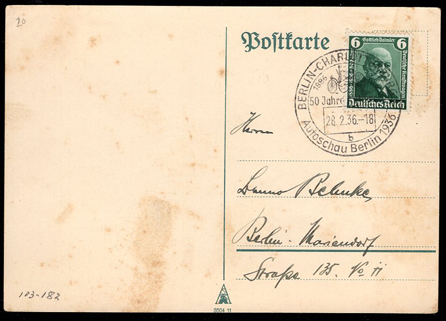 20
Postkarte
6 Gottlieb Daimler 6
Deutsches Reich
BERLIN-CHARL
1886
50 Jahre
28.2.36.-18
b
Autoschau Berlin 1936
Herrn
Bruno Behnke,
Berlin-Mariendorf
Straße 135. No 11
103-182